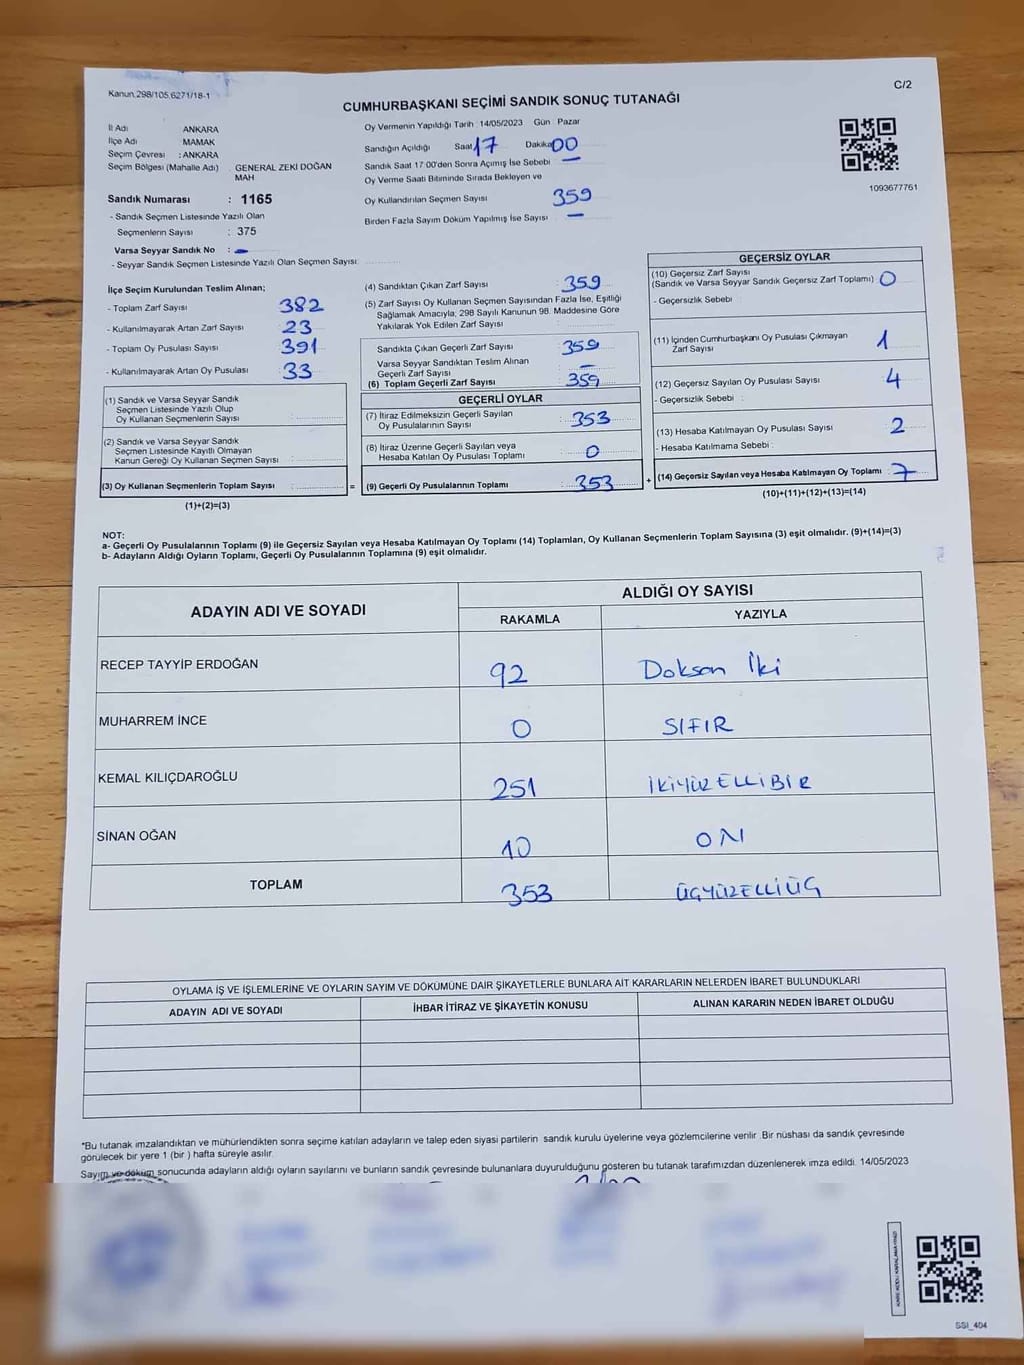 Kanun.298/105.6271/18-1
C/2
CUMHURBAŞKANI SEÇİMİ SANDIK SONUÇ TUTANAĞI
İl Adı ANKARA
İlçe Adı MAMAK
Seçim Çevresi : ANKARA
Seçim Bölgesi (Mahalle Adı) : GENERAL ZEKİ DOĞAN MAH
Sandık Numarası : 1165
- Sandık Seçmen Listesinde Yazılı Olan
Seçmenlerin Sayısı : 375
Varsa Seyyar Sandık No : -
- Seyyar Sandık Seçmen Listesinde Yazılı Olan Seçmen Sayısı:
Oy Vermenin Yapıldığı Tarih 14/05/2023 Gün Pazar
Sandığın Açıldığı Saat 17 Dakika 00
Sandık Saat 17:00'den Sonra Açımış İse Sebebi -
Oy Verme Saati Bitiminde Sırada Bekleyen ve
Oy Kullandırılan Seçmen Sayısı 359
Birden Fazla Sayım Döküm Yapılmış İse Sayısı -
1093677761
İlçe Seçim Kurulundan Teslim Alınan;
- Toplam Zarf Sayısı 382
- Kullanılmayarak Artan Zarf Sayısı 23
- Toplam Oy Pusulası Sayısı 391
- Kullanılmayarak Artan Oy Pusulası 33
(1) Sandık ve Varsa Seyyar Sandık
Seçmen Listesinde Yazılı Olup
Oy Kullanan Seçmenlerin Sayısı :
(2) Sandık ve Varsa Seyyar Sandık
Seçmen Listesinde Kayıtlı Olmayan
Kanun Gereği Oy Kullanan Seçmen Sayısı :
(3) Oy Kullanan Seçmenlerin Toplam Sayısı : =
(1)+(2)=(3)
(4) Sandıktan Çıkan Zarf Sayısı : 359
(5) Zarf Sayısı Oy Kullanan Seçmen Sayısından Fazla İse, Eşitliği
Sağlamak Amacıyla; 298 Sayılı Kanunun 98. Maddesine Göre
Yakılarak Yok Edilen Zarf Sayısı :
Sandıkta Çıkan Geçerli Zarf Sayısı : 359
Varsa Seyyar Sandıktan Teslim Alınan
Geçerli Zarf Sayısı : -
(6) Toplam Geçerli Zarf Sayısı : 359
GEÇERLİ OYLAR
(7) İtiraz Edilmeksizin Geçerli Sayılan
Oy Pusulalarının Sayısı : 353
(8) İtiraz Üzerine Geçerli Sayılan veya
Hesaba Katılan Oy Pusulası Toplamı : 0
(9) Geçerli Oy Pusulalarının Toplamı : 353 +
GEÇERSİZ OYLAR
(10) Geçersiz Zarf Sayısı
(Sandık ve Varsa Seyyar Sandık Geçersiz Zarf Toplamı) 0
- Geçersizlik Sebebi
(11) İçinden Cumhurbaşkanı Oy Pusulası Çıkmayan
Zarf Sayısı : 1
(12) Geçersiz Sayılan Oy Pusulası Sayısı : 4
- Geçersizlik Sebebi :
(13) Hesaba Katılmayan Oy Pusulası Sayısı : 2
- Hesaba Katılmama Sebebi :
(14) Geçersiz Sayılan veya Hesaba Katılmayan Oy Toplamı : 7
(10)+(11)+(12)+(13)=(14)
NOT:
a- Geçerli Oy Pusulalarının Toplamı (9) ile Geçersiz Sayılan veya Hesaba Katılmayan Oy Toplamı (14) Toplamları, Oy Kullanan Seçmenlerin Toplam Sayısına (3) eşit olmalıdır. (9)+(14)=(3)
b- Adayların Aldığı Oyların Toplamı, Geçerli Oy Pusulalarının Toplamına (9) eşit olmalıdır.
ADAYIN ADI VE SOYADI
ALDIĞI OY SAYISI
RAKAMLA YAZIYLA
RECEP TAYYİP ERDOĞAN 92 Doksan İki
MUHARREM İNCE 0 SIFIR
KEMAL KILIÇDAROĞLU 251 İKİYÜZELLİBİR
SİNAN OĞAN 10 ON
TOPLAM 353 ÜÇYÜZELLİÜÇ
OYLAMA İŞ VE İŞLEMLERİNE VE OYLARIN SAYIM VE DÖKÜMÜNE DAİR ŞİKAYETLERLE BUNLARA AİT KARARLARIN NELERDEN İBARET BULUNDUKLARI
ADAYIN ADI VE SOYADI İHBAR İTİRAZ VE ŞİKAYETİN KONUSU ALINAN KARARIN NEDEN İBARET OLDUĞU
*Bu tutanak imzalandıktan ve mühürlendikten sonra seçime katılan adayların ve talep eden siyasi partilerin sandık kurulu üyelerine veya gözlemcilerine verilir. Bir nüshası da sandık çevresinde
görülecek bir yere 1 (bir ) hafta süreyle asılır.
Sayım ve döküm sonucunda adayların aldığı oyların sayılarını ve bunların sandık çevresinde bulunanlara duyurulduğunu gösteren bu tutanak tarafımızdan düzenlenerek imza edildi. 14/05/2023
SSI_404